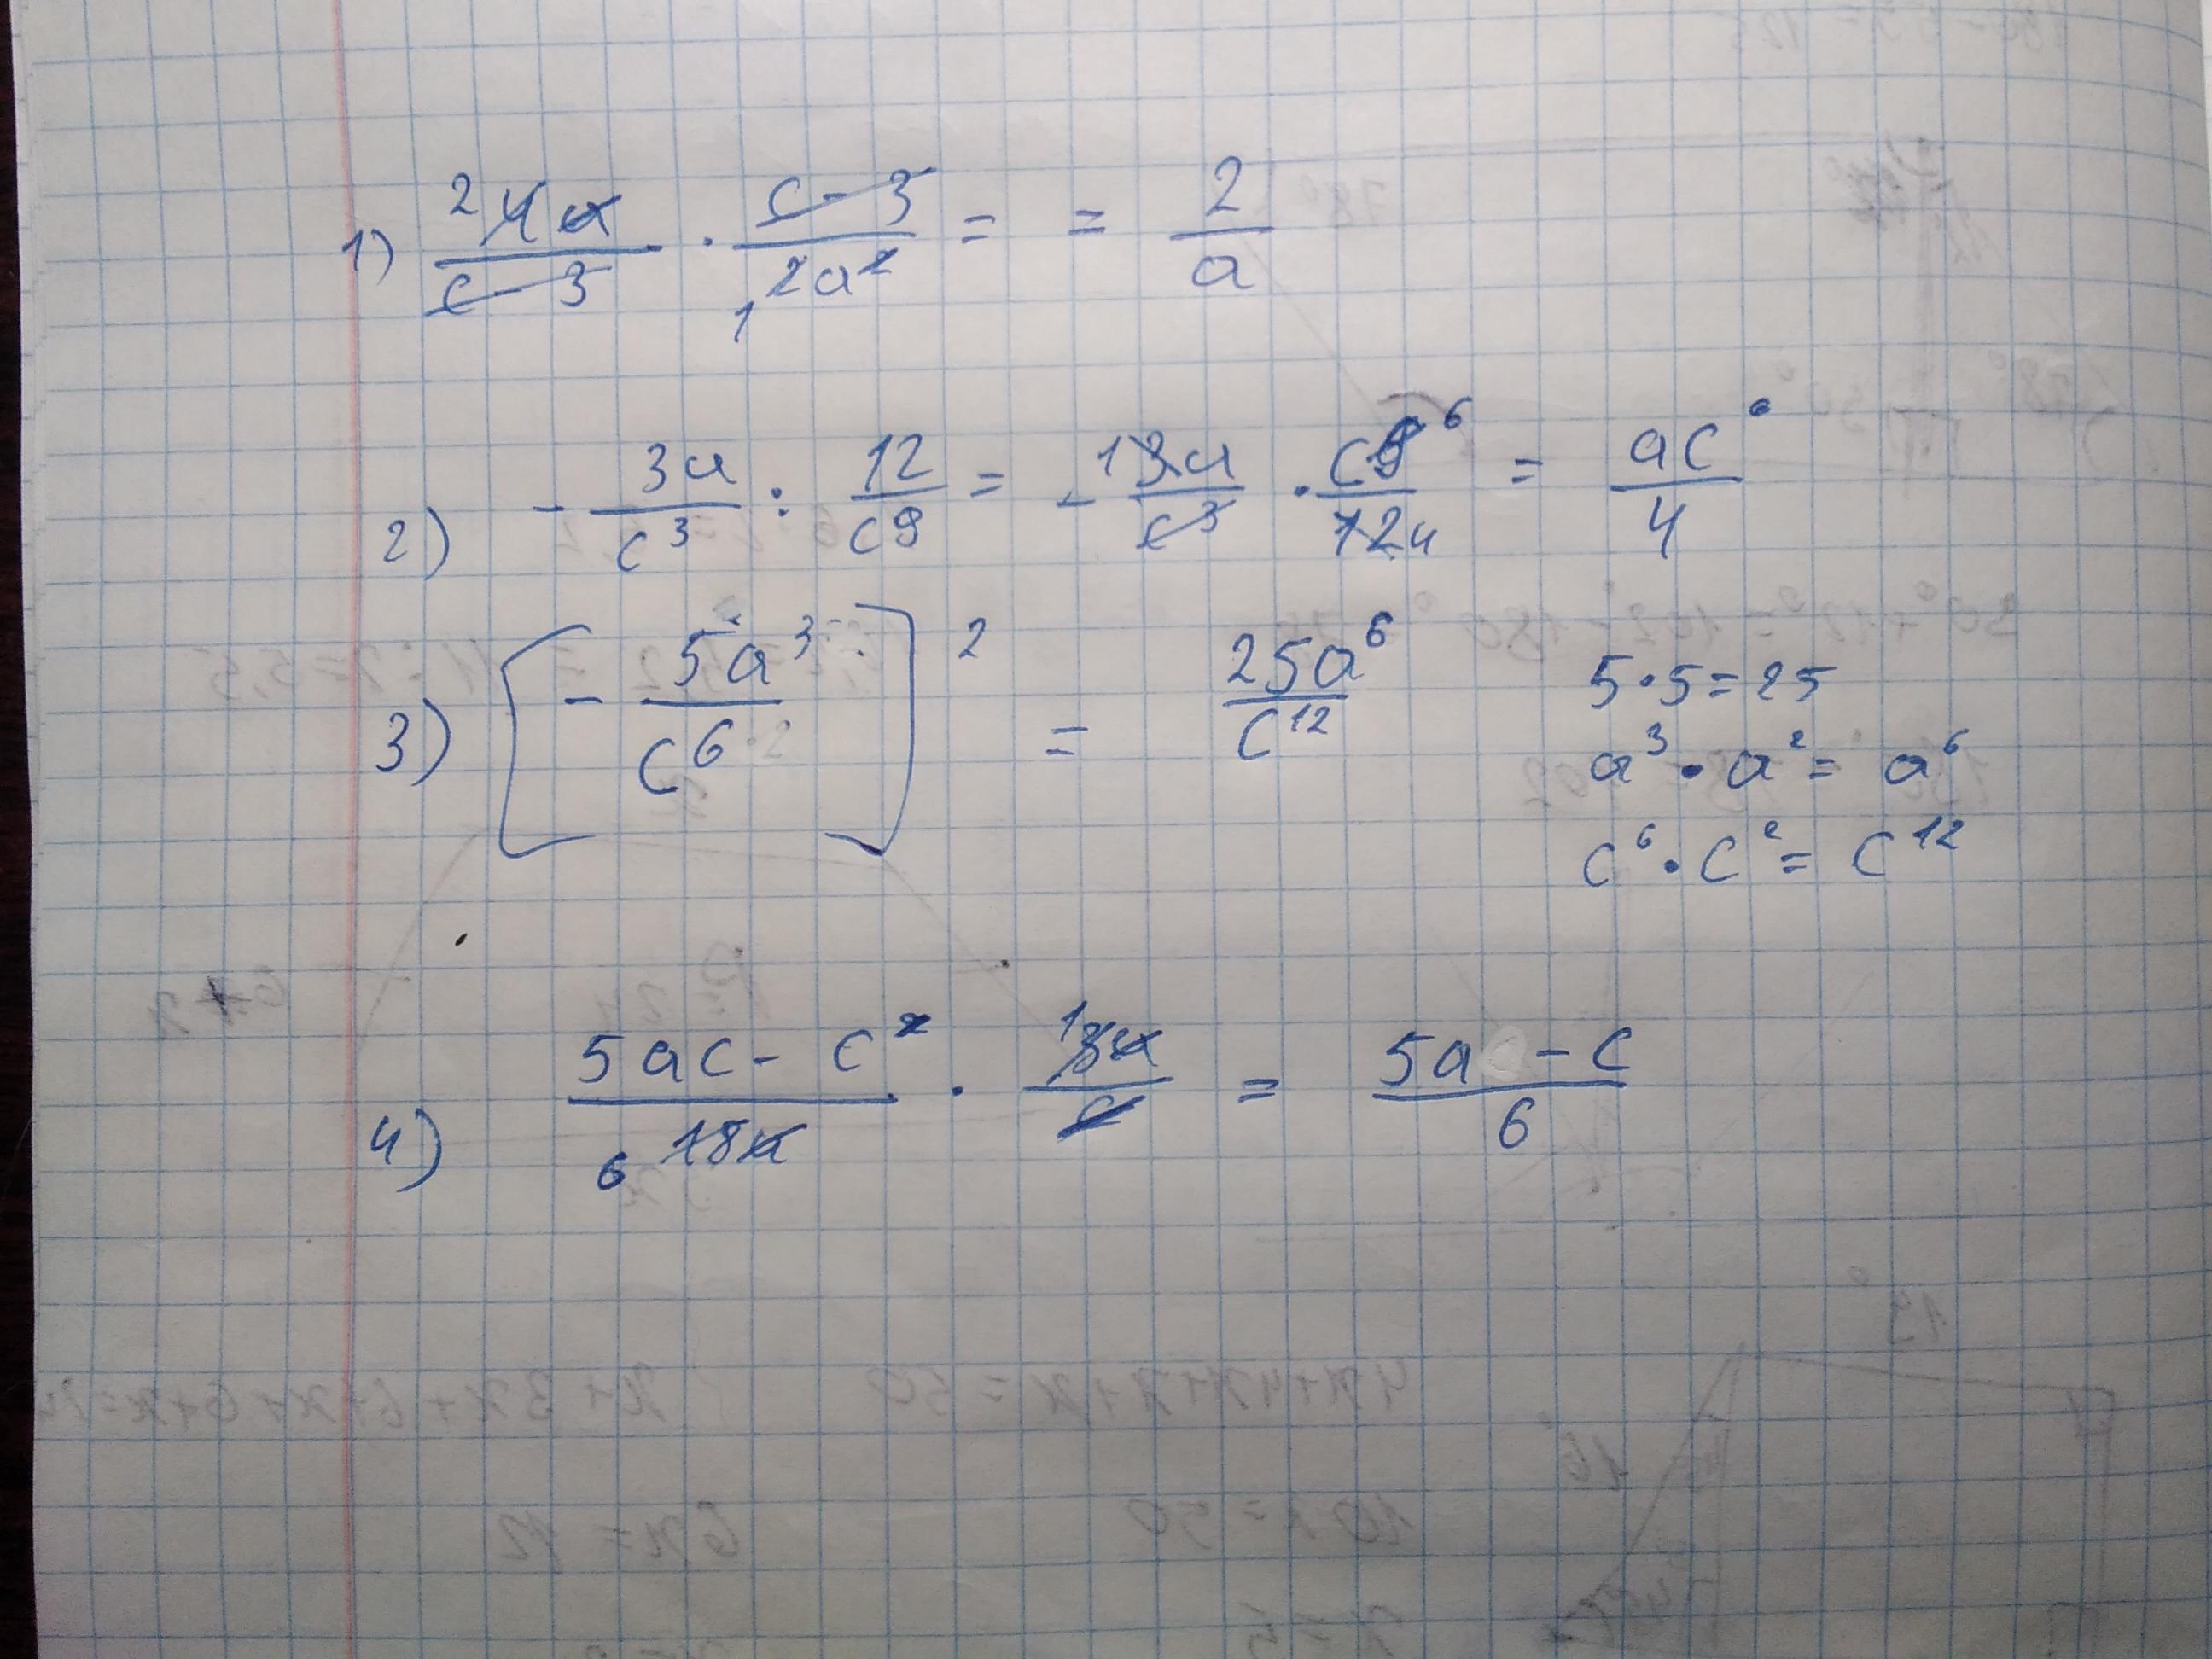 1) 2 4a/c-3 · c-3/1 2a² = = 2/a
2) - 3a/c³ : 12/c9 = - 1 3a/c³ · c9 6/12 4 = ac⁶/4
3) [- 5a³/c6]² = 25a⁶/c¹² 5·5=25
a³ · a² = a⁶
c⁶ · c² = c¹²
4) 5ac - c²/6 18a · 1 3a/c = 5a - c/6